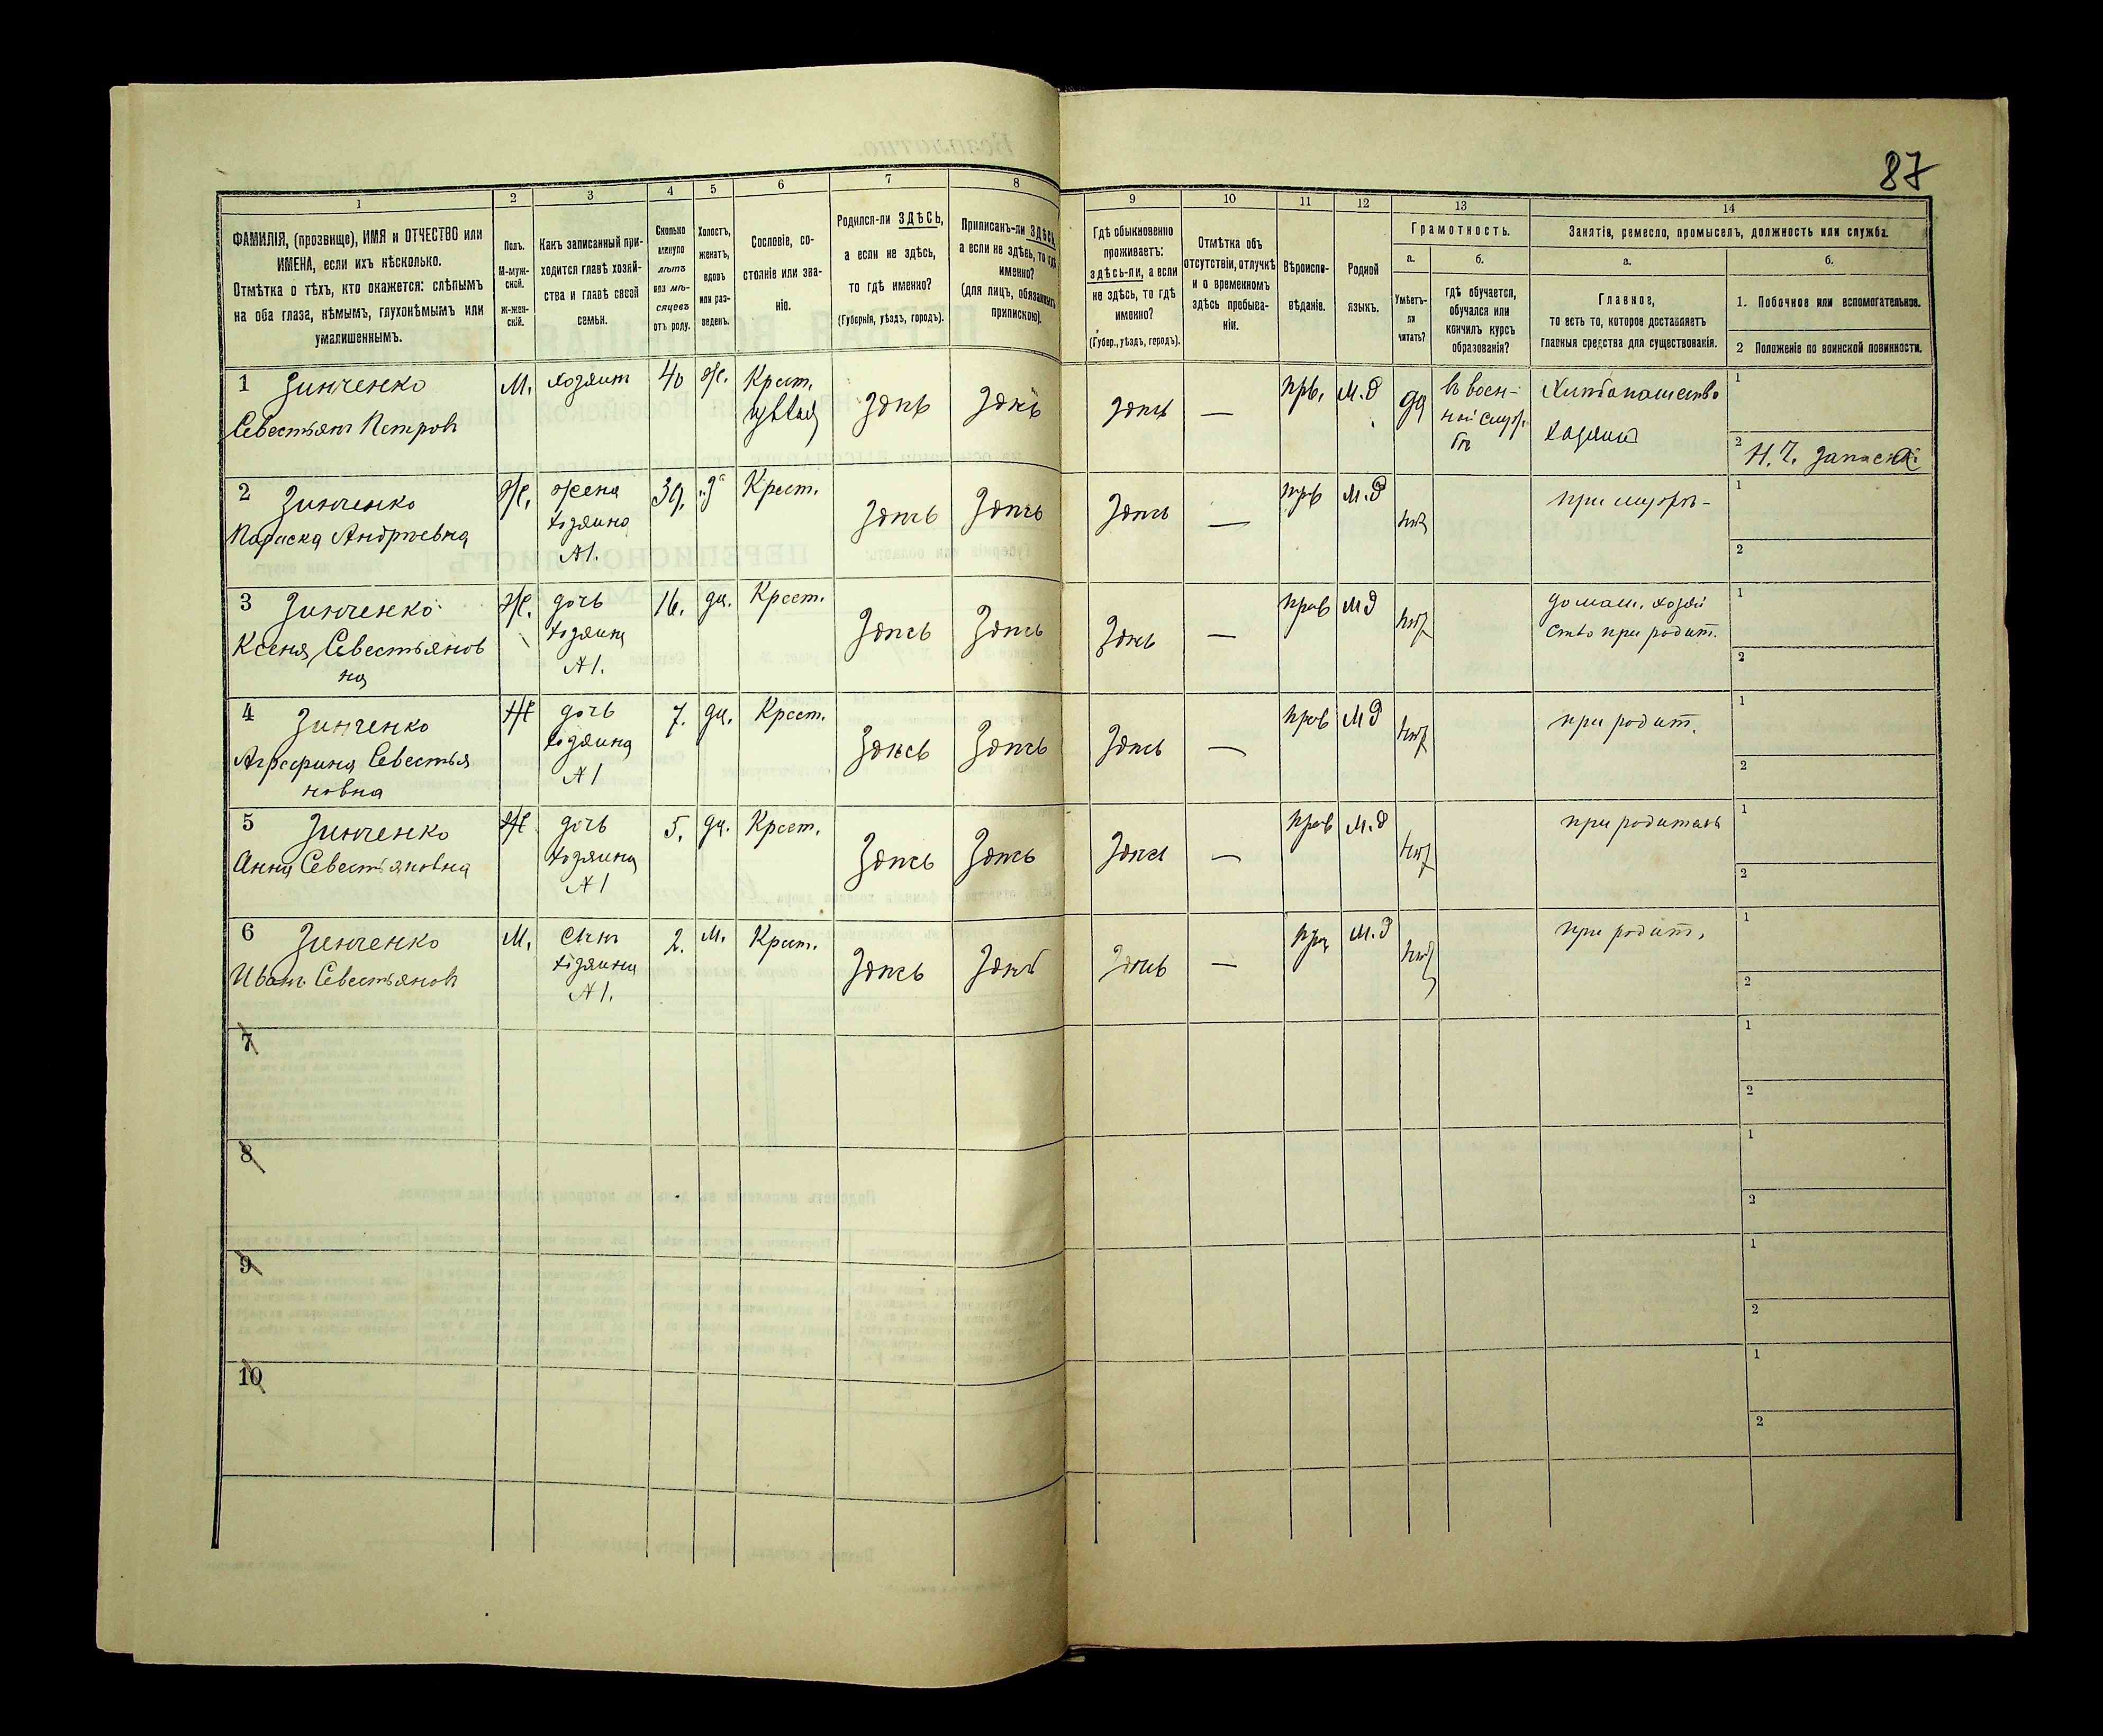 87
1 2 3 4 5 6 7 8 9 10 11 12 13 14
ФАМИЛІЯ, (прозвище), ИМЯ и ОТЧЕСТВО или
ИМЕНА, если ихъ нѣсколько.
Отмѣтка о тѣхъ, кто окажется: слѣпымъ
на оба глаза, нѣмымъ, глухонѣмымъ или
умалишеннымъ.
Полъ.
М-муж-
ской.
Ж-жен-
скій.
Какъ записанный при-
ходится главѣ хозяй-
ства и главѣ своей
семьи.
Сколько
минуло
лѣтъ
или мѣ-
сяцевъ
отъ роду.
Холостъ,
женатъ,
вдовъ
или раз-
веденъ.
Сословіе, со-
стояніе или зва-
ніе.
Родился-ли ЗДѢСЬ,
а если не здѣсь,
то гдѣ именно?
(Губернія, уѣздъ, городъ).
Приписанъ-ли ЗДѢСЬ,
а если не здѣсь, то гдѣ
именно?
(для лицъ, обязанныхъ
припискою).
Гдѣ обыкновенно
проживаетъ:
здѣсь-ли, а если
не здѣсь, то гдѣ
именно?
(Губер., уѣздъ, городъ).
Отмѣтка объ
отсутствіи, отлучкѣ
и о временномъ
здѣсь пребыва-
ніи.
Вѣроиспо-
вѣданіе.
Родной
языкъ.
Грамотность.
а.
Умѣетъ-
ли
читать?
б.
гдѣ обучается,
обучался или
кончилъ курсъ
образованія?
Занятіе, ремесло, промыселъ, должность или служба.
а.
Главное,
то есть то, которое доставляетъ
главныя средства для существованія.
б.
1. Побочное или вспомогательное.
2 Положеніе по воинской повинности.
1 Зинченко
Севестьянъ Петровъ
М.
хозяин
40
Ж.
Крест.
здѣсь
здѣсь
здѣсь
—
прв.
М.д
да
въ воен-
ной служ.
бѣ
Хлѣбопашество
хозяин
1
2 Н. Ч. Запаса
2 Зинченко
Параска Андрѣевна
Ж.
жена
хозяина
№1.
39.
"з"
Крест.
Здѣсь
Здѣсь
Здѣсь
—
прв
М.д
нѣт
при мужѣ-
1
2
3 Зинченко
Ксеня Севестьянов
на
Ж.
дочь
хозяина
№1.
16.
дѣ.
Крест.
Здѣсь
Здѣсь
Здѣсь
—
прав
М д
нѣт
домаш. хозяй
ство при родит.
1
2
4 Зинченко
Аграфина Севестья
новна
Ж
дочь
хозяина
№1
7.
дѣ.
Крест.
Здѣсь
Здѣсь
Здѣсь
—
прав
М д
нѣт
при родит.
1
2
5 Зинченко
Анна Севестьяновна
Ж
дочь
хозяина
№1
5.
дѣ.
Крест.
Здѣсь
Здѣсь
Здѣсь
—
прав
М.д
нѣт
при родителѣ
1
2
6 Зинченко
Иванъ Севестьяновъ
М.
сынъ
хозяина
№1.
2.
М.
Крест.
Здѣсь
Здѣсь
Здѣсь
—
пра
М.д
нѣт
при родит.
1
2
7
1
2
8
1
2
9
1
2
10
1
2